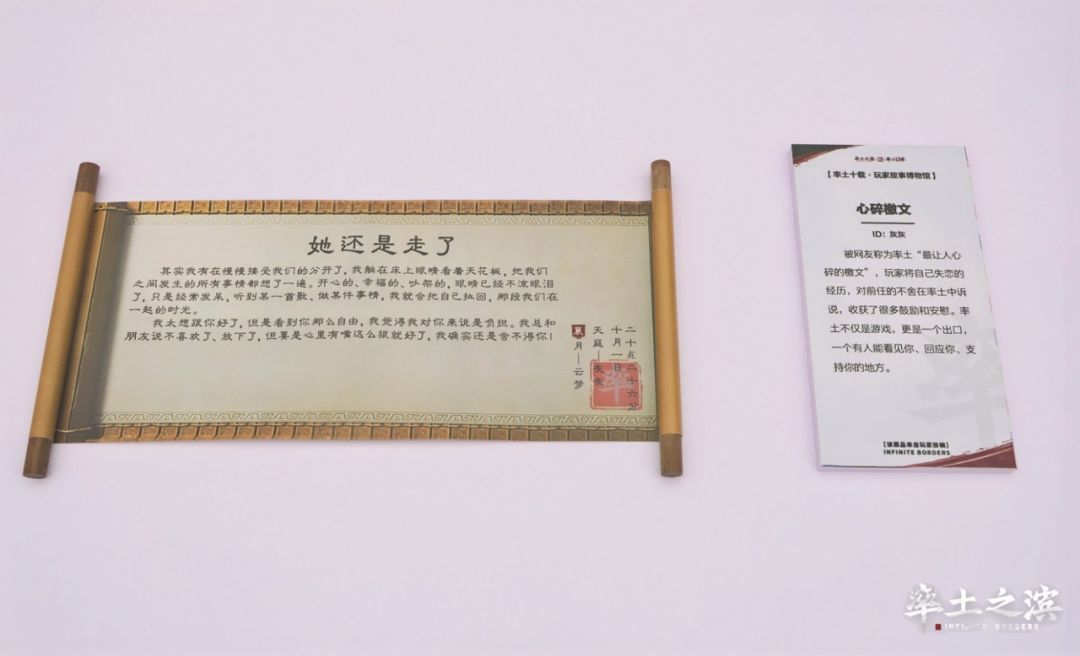 她还是走了
其实我有在慢慢接受我们的分开了,我躺在床上眼睛看着天花板,把我们
之间发生的所有事情都想了一遍。开心的、幸福的、吵架的,眼睛已经不流眼泪
了,只是经常发呆,听到某一首歌、做某件事情,我就会把自己拉回,那段我们在
一起的时光。
我太想跟你好了,但是看到你那么自由,我觉得我对你来说是负担。我总和
朋友说不喜欢了、放下了,但要是心里有嘴这么狠就好了,我确实还是舍不得你!
二十点二十六分
十月一日
天庭—夜夜
襄月—云梦
【率土十载·玩家故事博物馆】
心碎檄文
ID:灰灰
被网友称为率土“最让人心
碎的檄文”,玩家将自己失恋的
经历,对前任的不舍在率土中诉
说,收获了很多鼓励和安慰。率
土不仅是游戏,更是一个出口,
一个有人能看见你、回应你、支
持你的地方。
【该展品来自玩家投稿】
INFINITE BORDERS
率土之滨
INFINITE BORDERS